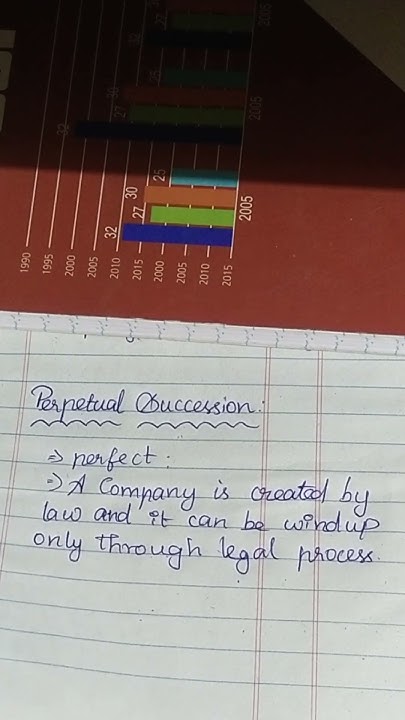 32
27
30
25
2005
32
27
30
25
2005
32
27
2005
1990
1995
2000
2005
2010
2015
2000
2005
2010
2015
Perpetual Succession:
⇒ perfect:
⇒ A Company is created by
law and it can be windup
only through legal process.